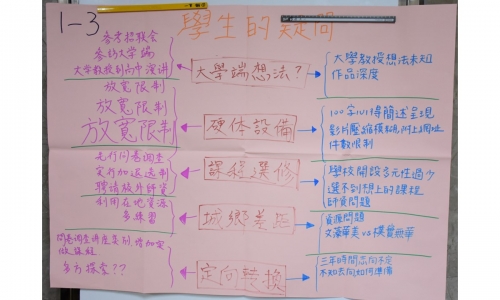 1-3
學生的疑問
參考招聯會
參訪大學端
大學教授到高中演講
大學端想法?
大學教授想法未知
作品深度
放寬限制
放寬限制
放寬限制
硬体設備
100字簡述呈現
影片壓縮模糊,附上網址
件數限制
先行問卷調查
實行加退選制
聘請校外師資
課程選修
學校開設多元性過少
選不到想上的課程
師資問題
利用在地資源
多練習
城鄉差距
資源問題
文藻華美 vs 樸實無華
問卷調查
多方探索??
定向轉換
三年時間志向不定
不知去向如何準備